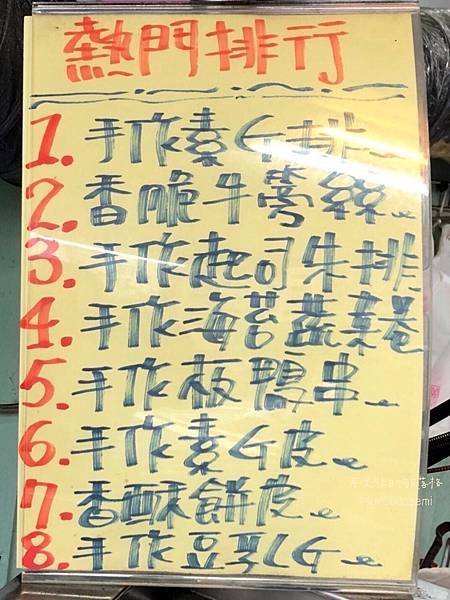 熱門排行
1. 手作素G排
2. 香脆牛蒡絲
3. 手作起司朱排
4. 手作海苔蔬菜卷
5. 手作板鴨串
6. 手作素G皮
7. 香酥餅皮
8. 手作豆乳G